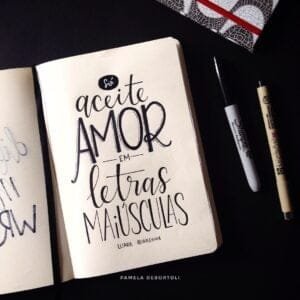 Só
aceite
AMOR
EM
letras
MAIÚSCULAS
PAMELA DEBORTOLI